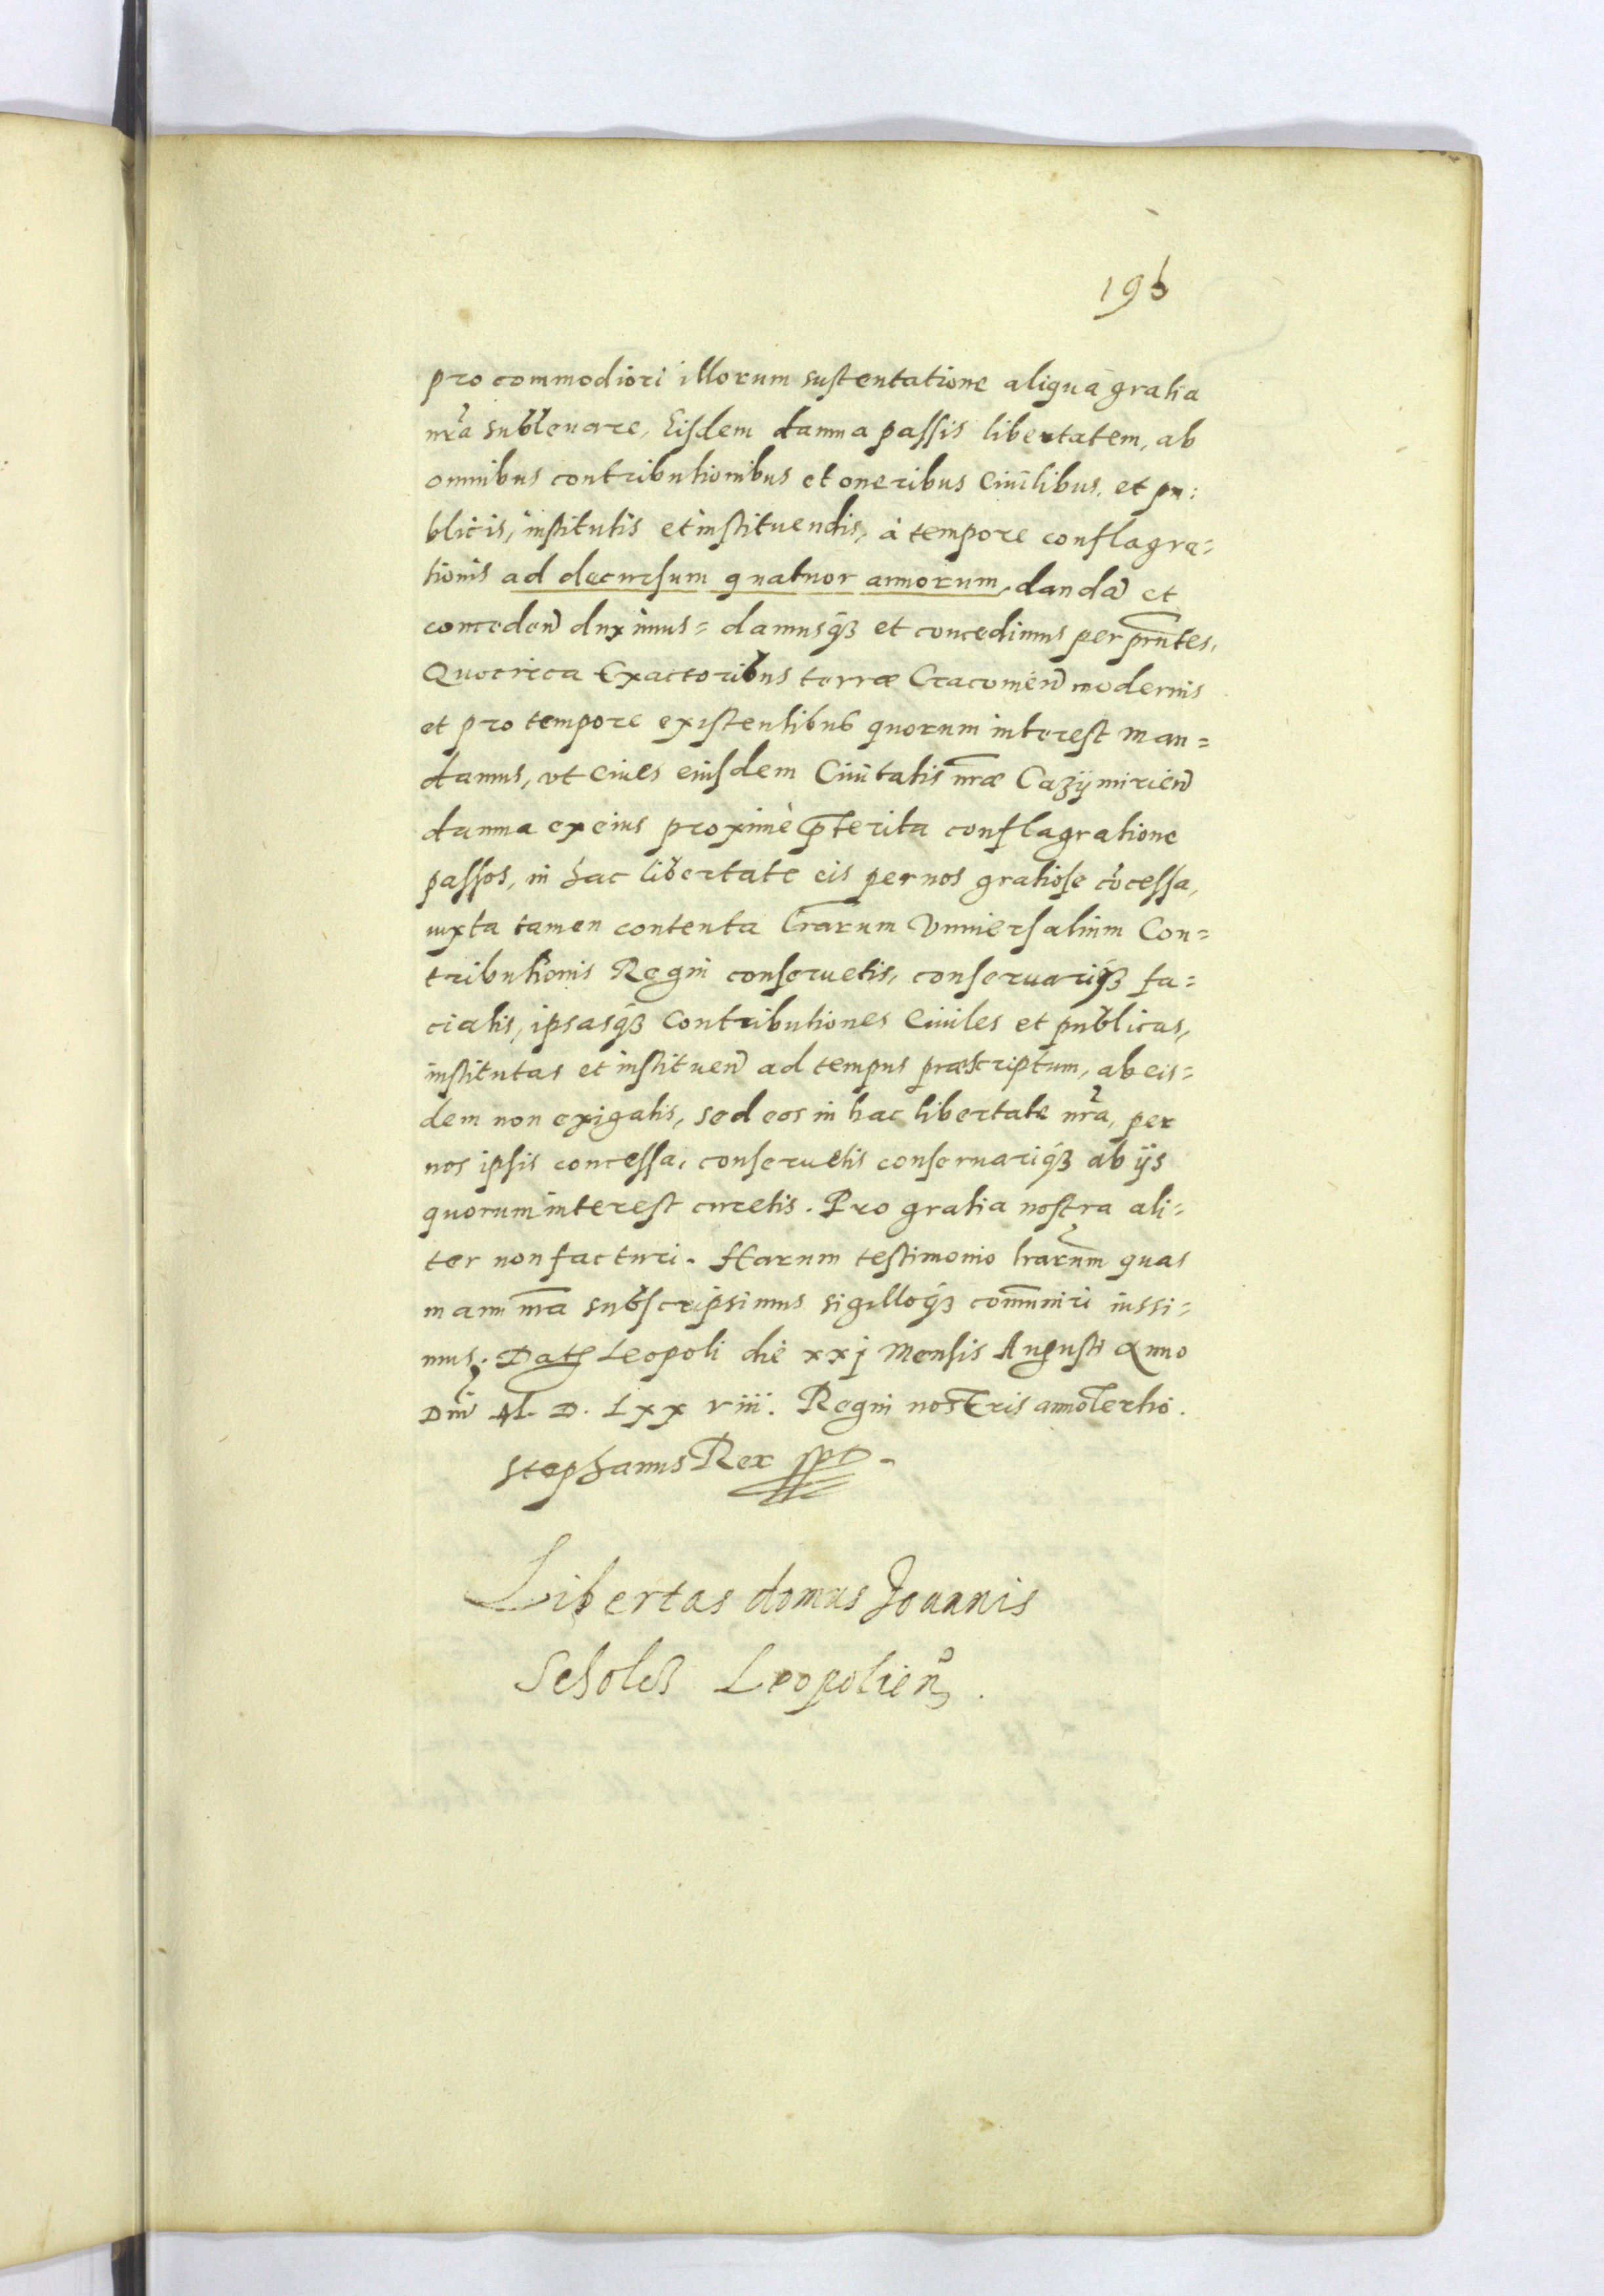 196
pro commodiori illorum sustentatione aliqua gratia
nr̃a subleuare, Eisdem damna passis libertatem, ab
omnibus contributionibus et oneribus Ciuilibus. et pu:
blicis, institutis et instituendis, à tempore conflagra=
tionis ad decursum quatuor annorum, dandã et
conceden̄ duximus= damusq₃ et concedimus per pn̄tes,
Quocirca Exactoribus terræ Cracouien̄ modernis
et pro tempore existentibus quorum interest man=
damus, vt ciues eiusdem Ciuitatis nr̄æ Cazÿmirien̄
damna ex eius proximè p̄terita conflagratione
passos, in hac libertate eis per nos gratiose cōcessa,
iuxta tamen contenta lr̄arum Vniuersalium Con=
tributionis Regni conseruetis, conseruariq₃ fa=
ciatis, ipsasq₃ Contributiones Ciuiles et publicas,
institutas et instituen̄ ad tempus præscriptum, ab eis=
dem non exigatis, sed eos in hac libertate nr̃a, per
nos ipsis concessa, conseruetis conseruariq₃ ab ijs
quorum interest curetis. Pro gratia nostra ali=
ter non facturi. Harum testimonio lr̄arum quas
manu nr̄a subscripsimus sigilloq₃ com̄uniri iussi=
mus. Datȝ Leopoli die xxj Mensis Augusti Anno
Dn̄i M. D. Lxx viii. Regni nostris anno Tertio.
Stephanus Rex sspt.
Libertas domus Joannis
Scholcz Leopolien̄.